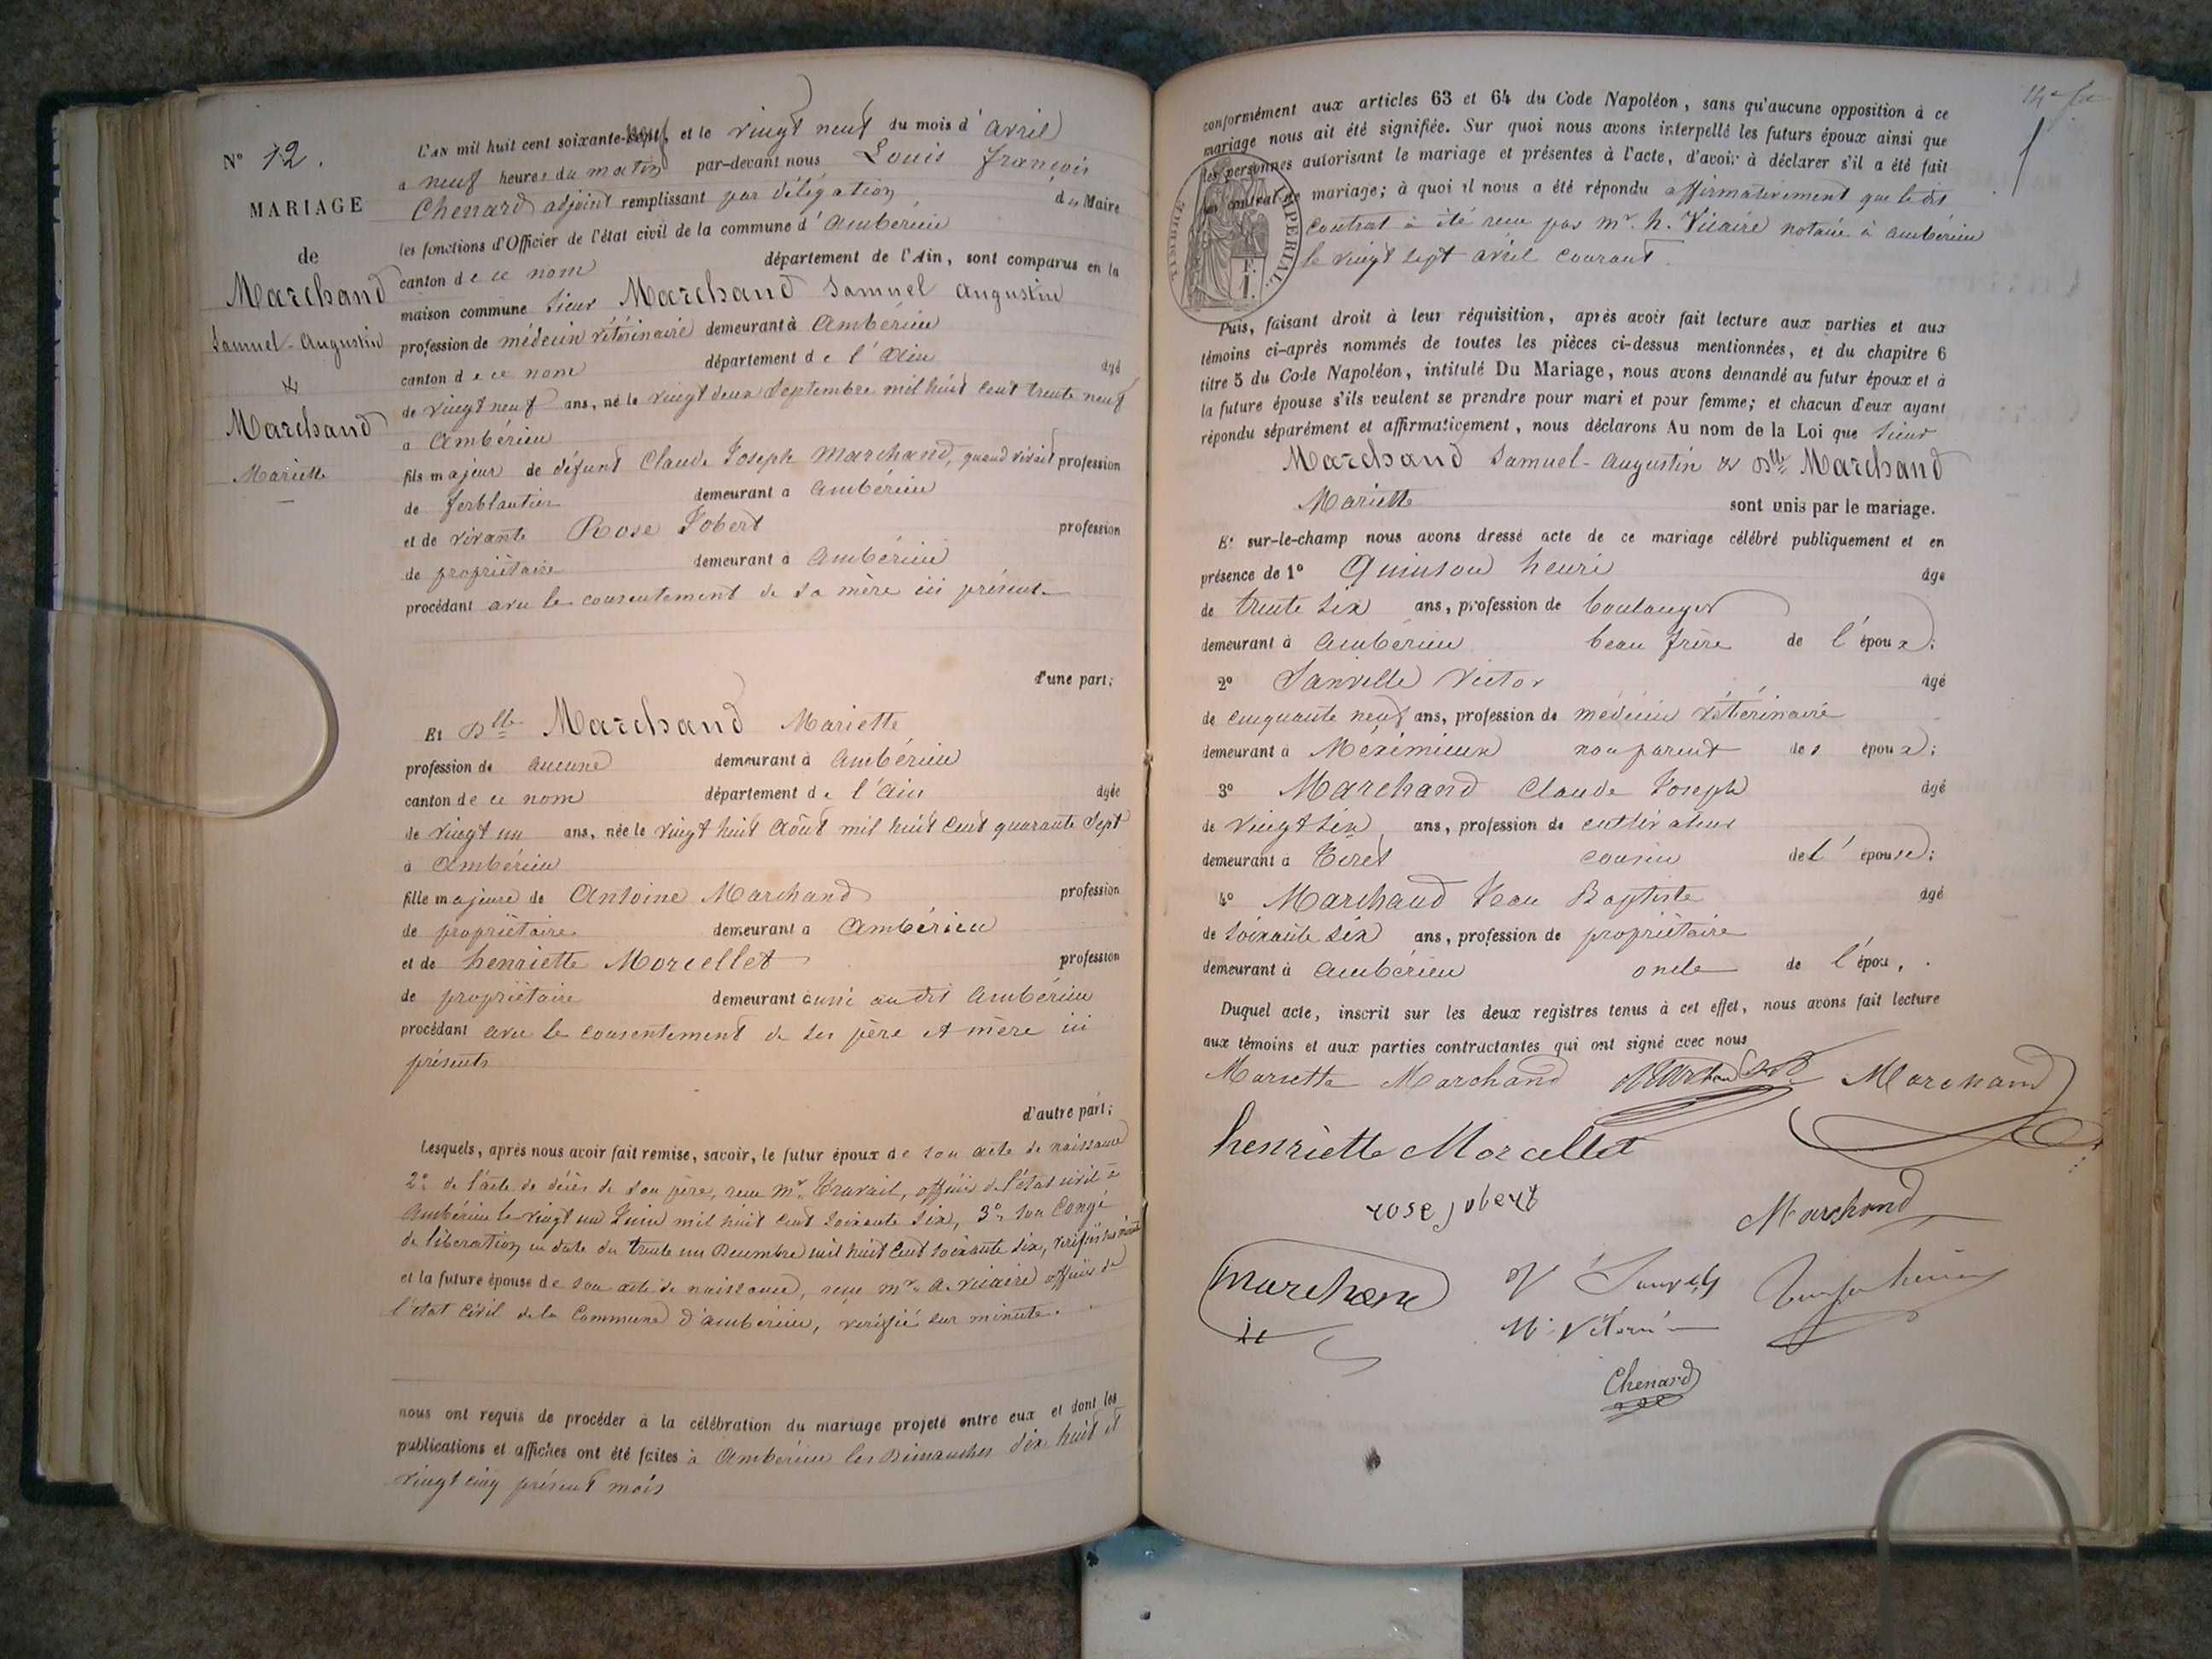 N° 12.
MARIAGE
de
Marchand
Samuel-Augustin
&
Marchand
Mariette
L'AN mil huit cent soixante-neuf, et le vingt neuf du mois d'avril
a neuf heures du matin par-devant nous Louis François
Chenard adjoint remplissant par délégation du Maire
les fonctions d'Officier de l'état civil de la commune d'Ambérieu
canton de ce nom département de l'Ain, sont comparus en la
maison commune sieur Marchand Samuel Augustin
profession de médecin vétérinaire demeurant à Ambérieu
canton de ce nom département de l'Ain âgé
de vingt neuf ans, né le vingt deux Septembre mil huit cent trente neuf
à Ambérieu
fils majeur de défunt Claude Joseph Marchand, quand vivait profession
de ferblantier demeurant a Ambérieu
et de vivante Rose Jobert profession
de propriétaire demeurant à Ambérieu
procédant avec le consentement de sa mère ici présente
d'une part;
Et Dlle Marchand Mariette
profession de aucune demeurant à Ambérieu
canton de ce nom département de l'Ain âgée
de vingt un ans, née le vingt huit Août mil huit cent quarante Sept
à Ambérieu
fille majeure de Antoine Marchand profession
de propriétaire demeurant a Ambérieu
et de henriette Morcellet profession
de propriétaire demeurant aussi au dit Ambérieu
procédant avec le consentement de ses père et mère ici
présents
d'autre part;
Lesquels, après nous avoir fait remise, savoir, le futur époux de son acte de naissance
2° de l'acte de décès de son père, reçu Mr. Travail, officier de l'état civil à
Ambérieu le vingt un Juin mil huit cent soixante six, 3° son Congé
de libération en date du trente un Décembre mil huit cent soixante six, vérifiés sur minute
et la future épouse de son acte de naissance, reçu mr. a. Vicaire officier de
l'état civil de la Commune d'ambérieu, vérifié sur minute.
nous ont requis de procéder à la célébration du mariage projeté entre eux et dont les
publications et affiches ont été faites à Ambérieu les Dimanches dix huit et
vingt cinq présent mois
conformément aux articles 63 et 64 du Code Napoléon, sans qu'aucune opposition à ce
mariage nous ait été signifiée. Sur quoi nous avons interpellé les futurs époux ainsi que
les personnes autorisant le mariage et présentes à l'acte, d'avoir à déclarer s'il a été fait
un contrat de mariage; à quoi il nous a été répondu affirmativement que le dit
contrat à été reçu par mr. h. Vicaire notaire à ambérieu
le vingt sept avril courant.
TIMBRE IMPÉRIAL
Puis, faisant droit à leur réquisition, après avoir fait lecture aux parties et aux
témoins ci-après nommés de toutes les pièces ci-dessus mentionnées, et du chapitre 6
titre 5 du Code Napoléon, intitulé Du Mariage, nous avons demandé au futur époux et à
la future épouse s'ils veulent se prendre pour mari et pour femme; et chacun d'eux ayant
répondu séparément et affirmativement, nous déclarons Au nom de la Loi que sieur
Marchand Samuel-Augustin & Dlle Marchand
Mariette sont unis par le mariage.
Et sur-le-champ nous avons dressé acte de ce mariage célébré publiquement et en
présence de 1° Quinson henri âge
de trente six ans, profession de boulanger
demeurant à Ambérieu beau frère de l'époux;
2° Sanville Victor âgé
de cinquante neuf ans, profession de médecin vétérinaire
demeurant à Méximieux non parent des époux;
3° Marchand Claude Joseph âgé
de vingt six ans, profession de cultivateur
demeurant à Tiret cousin de l'épouse;
4° Marchand Jean Baptiste âgé
de soixante six ans, profession de propriétaire
demeurant à Ambérieu oncle de l'épou,
Duquel acte, inscrit sur les deux registres tenus à cet effet, nous avons fait lecture
aux témoins et aux parties contractantes qui ont signé avec nous
Mariette Marchand Marchand
henriette Morcellet
rose jobert Marchand
marchand
Chenard